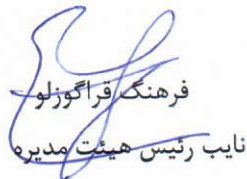 فرهنگ قراگوزلو
نایب رئیس هیئت مدیره